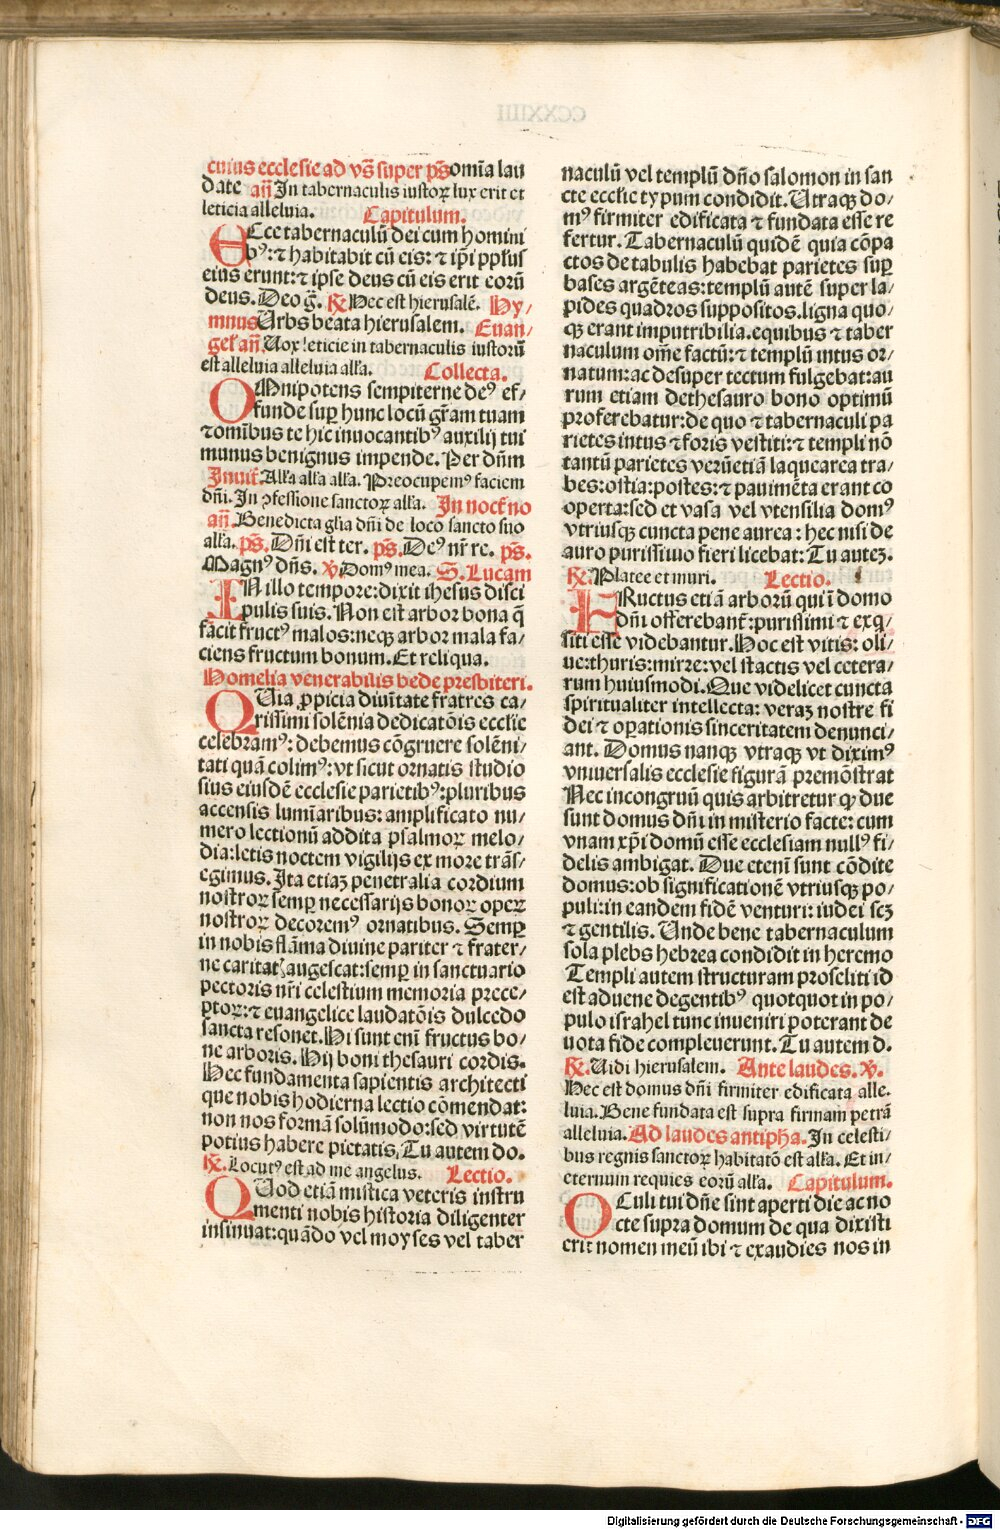 cuius ecclesie ad vs̄ super ps̄ omīa lau
date an̄ In tabernaculis iustoꝝ lux erit et
leticia alleluia. Capitulum.
ECce tabernaculū dei cum homini
bꝰ: ⁊ habitabit cū eis: ⁊ ip̄i pp̄lus
eius erunt: ⁊ ipse deus cū eis erit eorū
deus. Deo g̅. ℟ Hec est hierusalē. Hy/
mnus Urbs beata hierusalem. Euan/
gel̓ an̄. Uox leticie in tabernaculis iustorū
est alleluia alleluia all̓a. Collecta.
OMnipotens sempiterne deꝰ ef/
funde suꝑ hunc locū gr̄am tuam
⁊ omībus te hic inuocantibꝰ auxilij tui
munus benignus impende. Per dn̄m
Inuit̄. All̓a all̓a all̓a. Preocupemꝰ faciem
dn̄i. In ꝯfessione sanctoꝝ all̓a. In noct̄ no
an̄. Benedicta gl̓ia dn̄i de loco sancto suo
all̓a. ps̄. Dn̄i est ter. ps̄. Deꝰ nr̄ re. ps̄.
Magnꝰ dn̄s. ℣. Domꝰ mea. S. Lucam
IN illo tempore: dixit ihesus disci
pulis suis. Non est arbor bona q̄
facit fructꝰ malos: neqꝫ arbor mala fa/
ciens fructum bonum. Et reliqua.
Homelia venerabilis bede presbiteri.
QUia ꝓpicia diuītate fratres ca/
rissimi solēnia dedicatōis eccl̓ie
celebramꝰ: debemus cōgruere solēni/
tati quā colimꝰ: vt sicut ornatis studio
sius eiusdē ecclesie parietibꝰ: pluribus
accensis lumīaribus: amplificato nu/
mero lectionū addita psalmoꝝ melo/
dia: letis noctem vigilijs ex more trās/
egimus. Ita etiaꝫ penetralia cordium
nostroꝝ semꝑ necessarijs bonoꝝ operꝝ
nostroꝝ decoremꝰ ornatibus. Semꝑ
in nobis flāma diuine pariter ⁊ frater/
ne caritat̓ augescat: semꝑ in sanctuario
pectoris nr̄i celestium memoria prece/
ptoꝝ: ⁊ euangelice laudatōis dulcedo
sancta resonet. Hi sunt enī fructus bo/
ne arboris. Hij boni thesauri cordis.
Hec fundamenta sapientis architecti
que nobis hodierna lectio cōmendat:
non nos formā solūmodo: sed virtutē
potius habere pietatis, Tu autem do.
℟. Locutꝰ est ad me angelus. Lectio.
QUod etiā mistica veteris instru
menti nobis historia diligenter
insinuat: quādo vel moyses vel taber
naculū vel templū dn̄o salomon in san
cte eccl̓ie typum condidit. Utraqꝫ do/
mꝰ firmiter edificata ⁊ fundata esse re
fertur. Tabernaculū quidē quia cōpa
ctos de tabulis habebat parietes suꝑ
bases argēteas: templū autē super la/
pides quadros suppositos. ligna quo/
qꝫ erant imputribilia. equibus ⁊ taber
naculum om̄e factū: ⁊ templū intus or/
natum: ac desuper tectum fulgebat: au
rum etiam dethesauro bono optimū
proferebatur: de quo ⁊ tabernaculi pa
rietes intus ⁊ foris vestiti: ⁊ templi nō
tantū parietes verū etiā laquearea tra/
bes: ostia: postes: ⁊ pauimēta erant co
operta: sed et vasa vel vtensilia domꝰ
vtriusqꝫ cuncta pene aurea: hec nisi de
auro purissimo fieri licebat: Tu auteꝫ.
℟. Platee et muri. Lectio.
FRuctus etiā arborū qui ī domo
dn̄i offerebant̄: purissimi ⁊ exq̄/
siti esse videbantur. Hoc est vitis: oli/
ue: thuris: mirre: vel stactis vel cetera/
rum huiusmodi. Que videlicet cuncta
spiritualiter intellecta: veraꝫ nostre fi
dei ⁊ oꝑationis sinceritatem denunci/
ant. Domus nanqꝫ vtraqꝫ vt diximꝰ
vniuersalis ecclesie figurā premōstrat
Nec incongruū quis arbitretur ꝙ due
sunt domus dn̄i in misterio facte: cum
vnam xp̄i domū esse ecclesiam nullꝰ fi/
delis ambigat. Due etenī sunt cōdite
domus: ob significationē vtriusqꝫ po/
puli: in eandem fidē venturi: iudei scꝫ
⁊ gentilis. Unde bene tabernaculum
sola plebs hebrea condidit in heremo
Templi autem structuram proseliti id
est aduene degentibꝰ quotquot in po/
pulo israhel tunc inueniri poterant de
uota fide compleuerunt. Tu autem d.
℟. Uidi hierusalem. Ante laudes. ℣.
Hec est domus dn̄i firmiter edificata alle.
luia. Bene fundata est supra firmam petrā
alleluia. Ad laudes antipħa. In celesti/
bus regnis sanctoꝝ habitatō est all̓a. Et in/
eternum requies eorū all̓a. Capitulum.
OCuli tui dn̄e sint aperti die ac no
cte supra domum de qua dixisti
erit nomen meū ibi ⁊ exaudies nos in
Digitalisierung gefördert durch die Deutsche Forschungsgemeinschaft - DFG